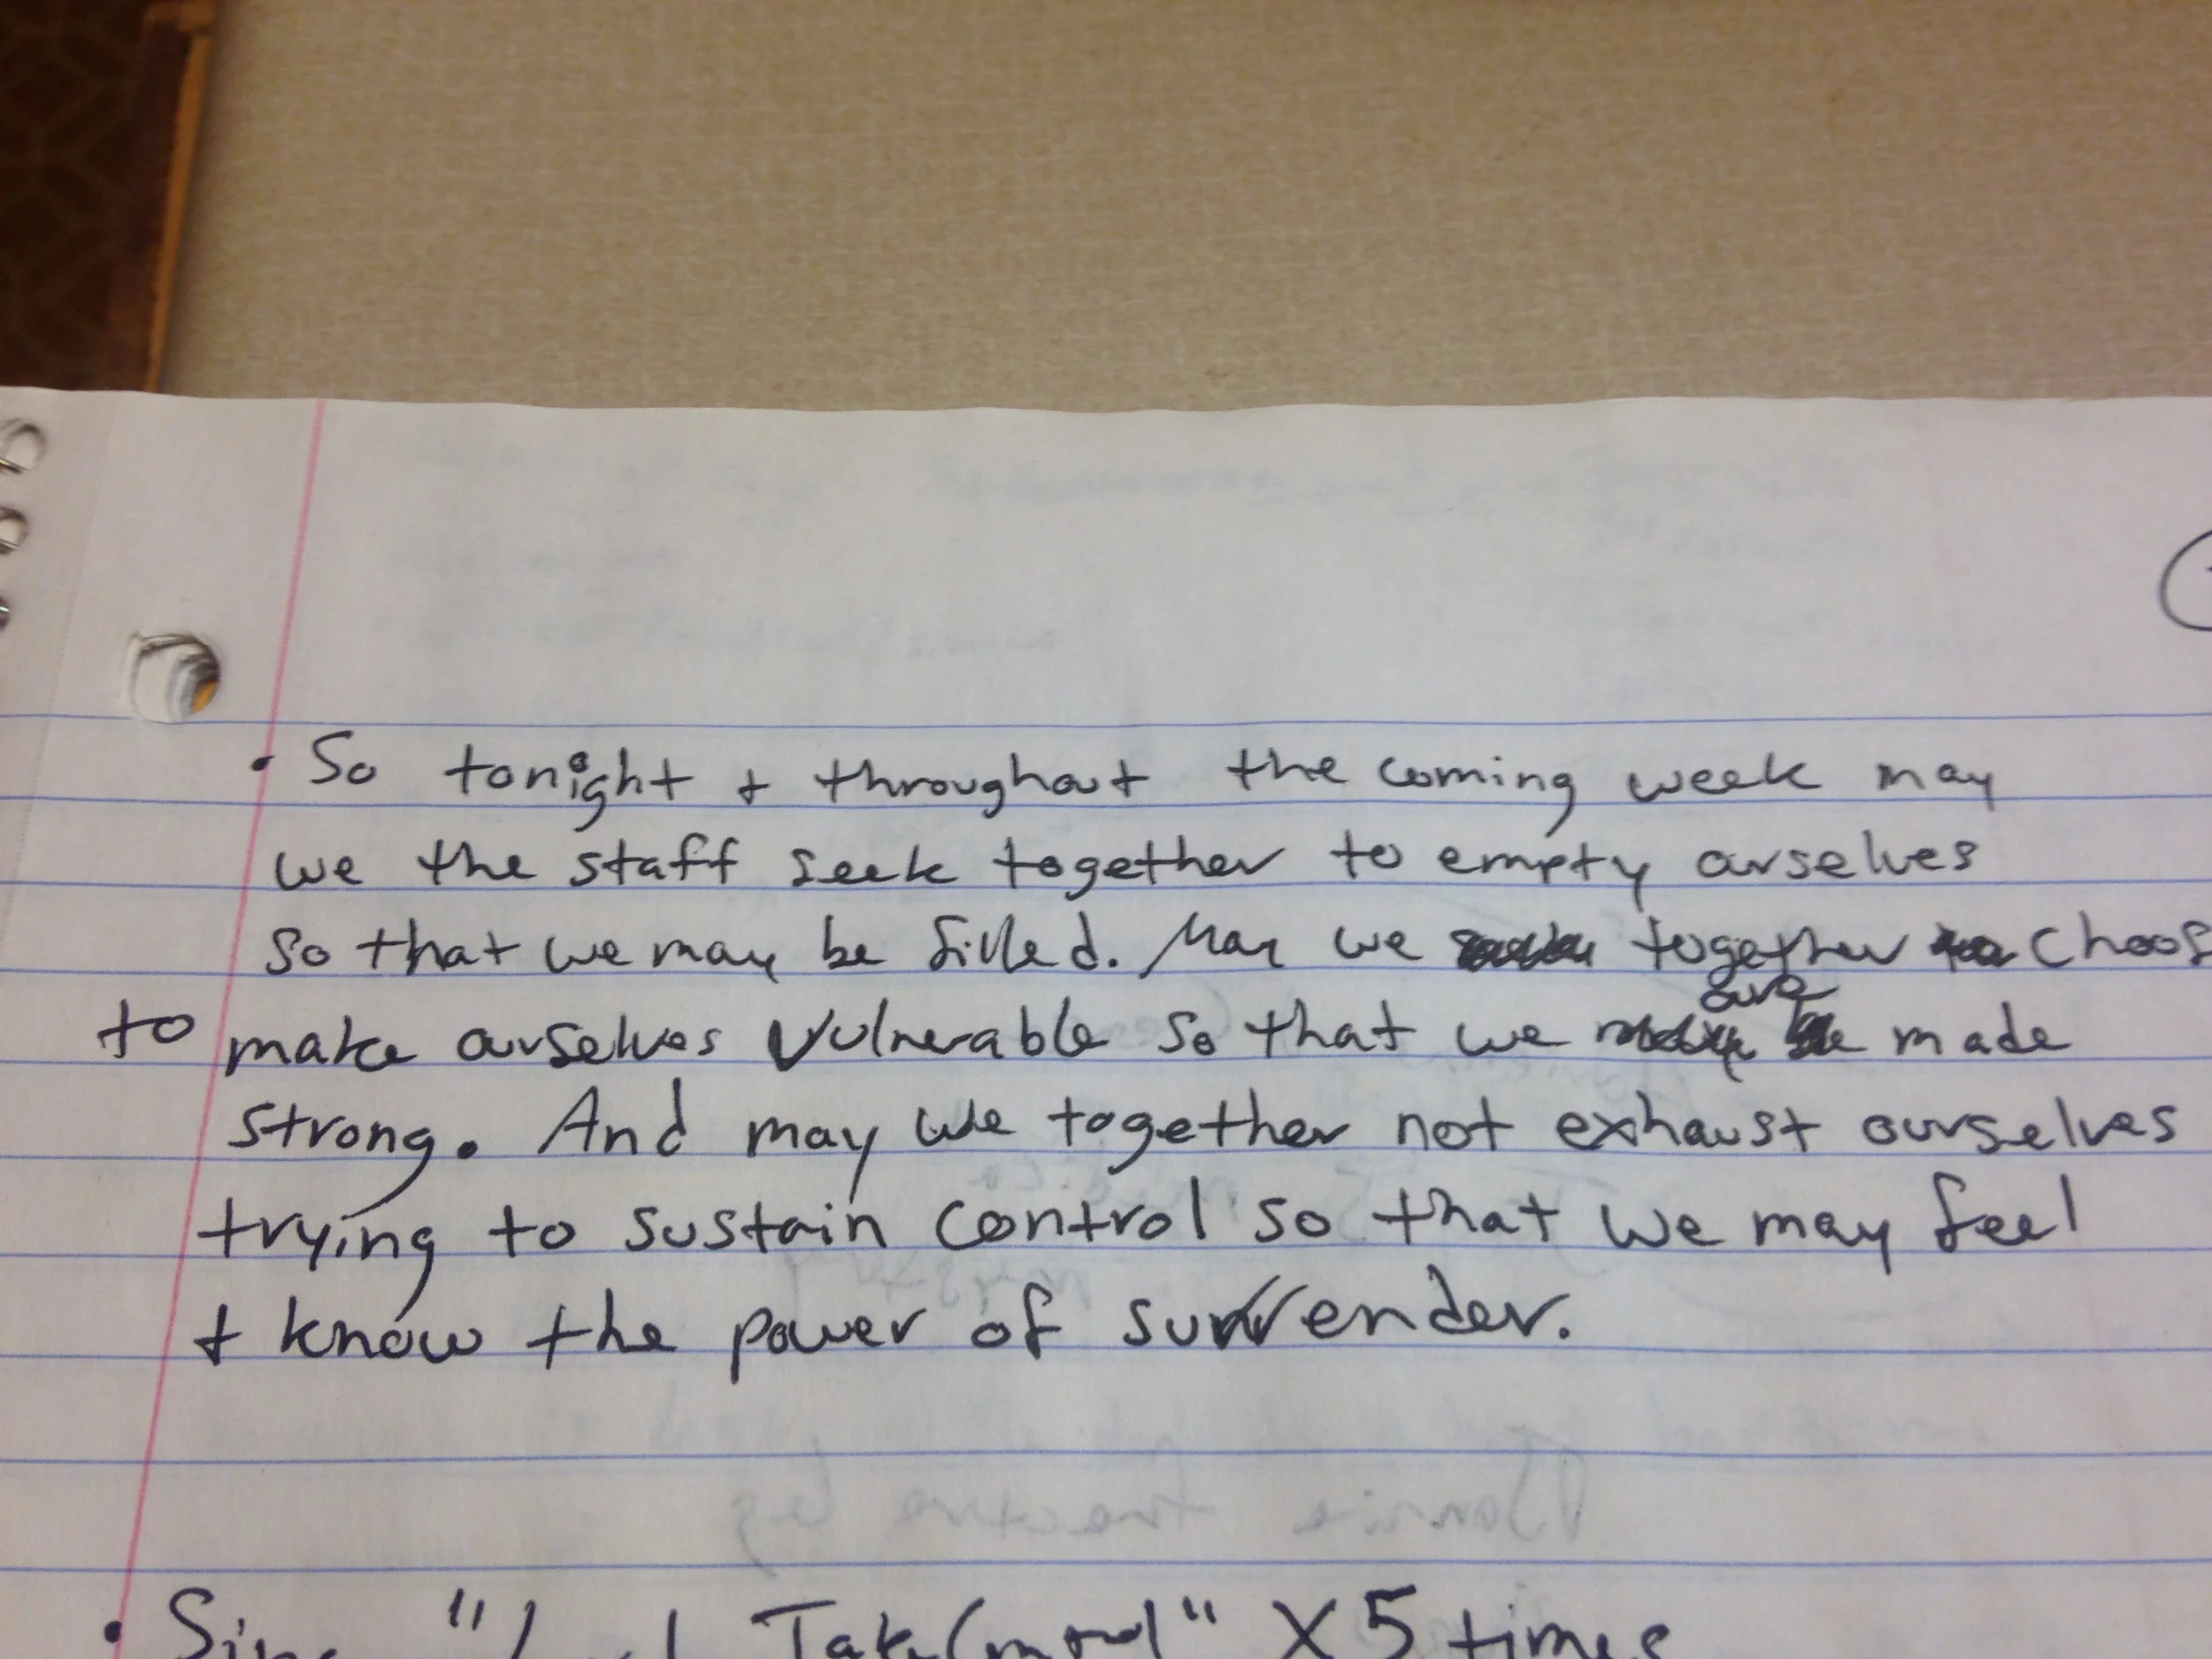 • So tonight + throughout the coming week may
we the staff seek together to empty ourselves
so that we may be filled. May we together choos
to make ourselves vulnerable so that we are made
strong. And may we together not exhaust ourselves
trying to sustain control so that we may feel
+ know the power of surrender.
• Sing " Take Control" X 5 times